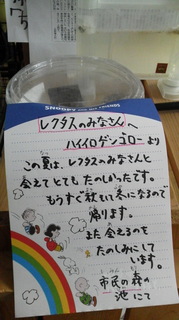 SNOOPY AND HIS FRIENDS
レクタスのみなさんへ
ハイイロゲンゴロー より
この夏は、レクタスのみなさんと
会えて とても たのしかったです。
もうすぐ 秋も いて 冬になるので
帰ります。
また 会えるのを
たのしみにして
います。
市民の森の
池にて